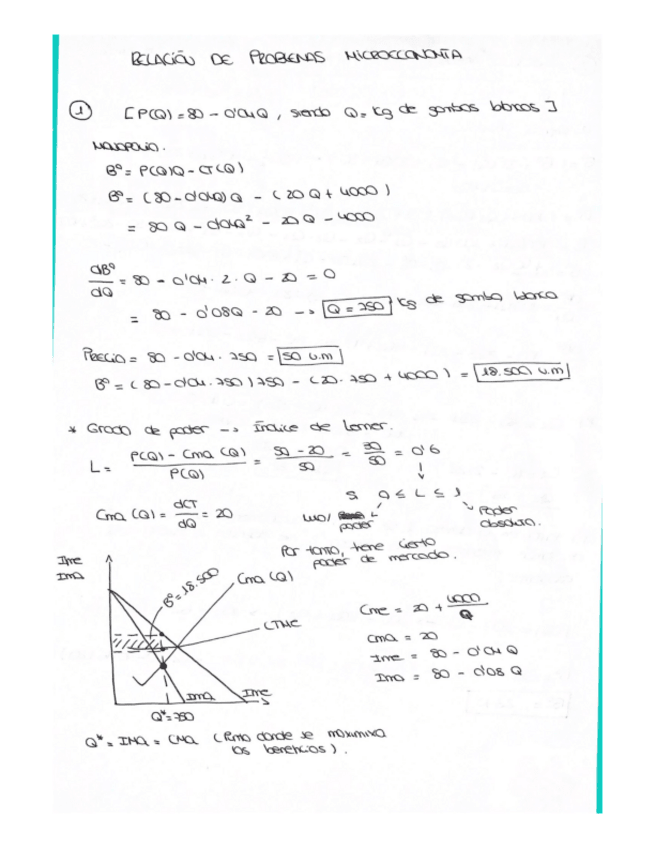 RELACIÓN DE PROBLEMAS MICROECONOMÍA
① [P(Q) = 80 - 0'04Q, siendo Q = Kg de gambas blancas]
MONOPOLIO.
Bº = P(Q)Q - CT(Q)
Bº = (80 - 0'04Q)Q - (20Q + 4000)
= 80Q - 0'04Q² - 20Q - 4000
dBº/dQ = 80 - 0'04 · 2 · Q - 20 = 0
= 80 - 0'08Q - 20 --> Q = 750 Kg de gamba blanca
PRECIO = 80 - 0'04 · 750 = 50 u.m
Bº = (80 - 0'04 · 750) 750 - (20 · 750 + 4000) = 18.500 u.m
* Grado de poder --> Índice de Lerner.
L = P(Q) - Cma(Q) / P(Q) = 50 - 20 / 50 = 30 / 50 = 0'6
0 ≤ L ≤ 1
Cma(Q) = dCT/dQ = 20
poder
Poder absoluto.
Por tanto, tiene cierto
poder de mercado.
Ime
Ima
Bº = 18.500
Cma(Q)
CTMe
Ima
Ime
Q* = 750
Cme = 20 + 4000/Q
Cma = 20
Ime = 80 - 0'04Q
Ima = 80 - 0'08Q
Q* = IMa = CMa (Punto donde se maximiza
los beneficios).